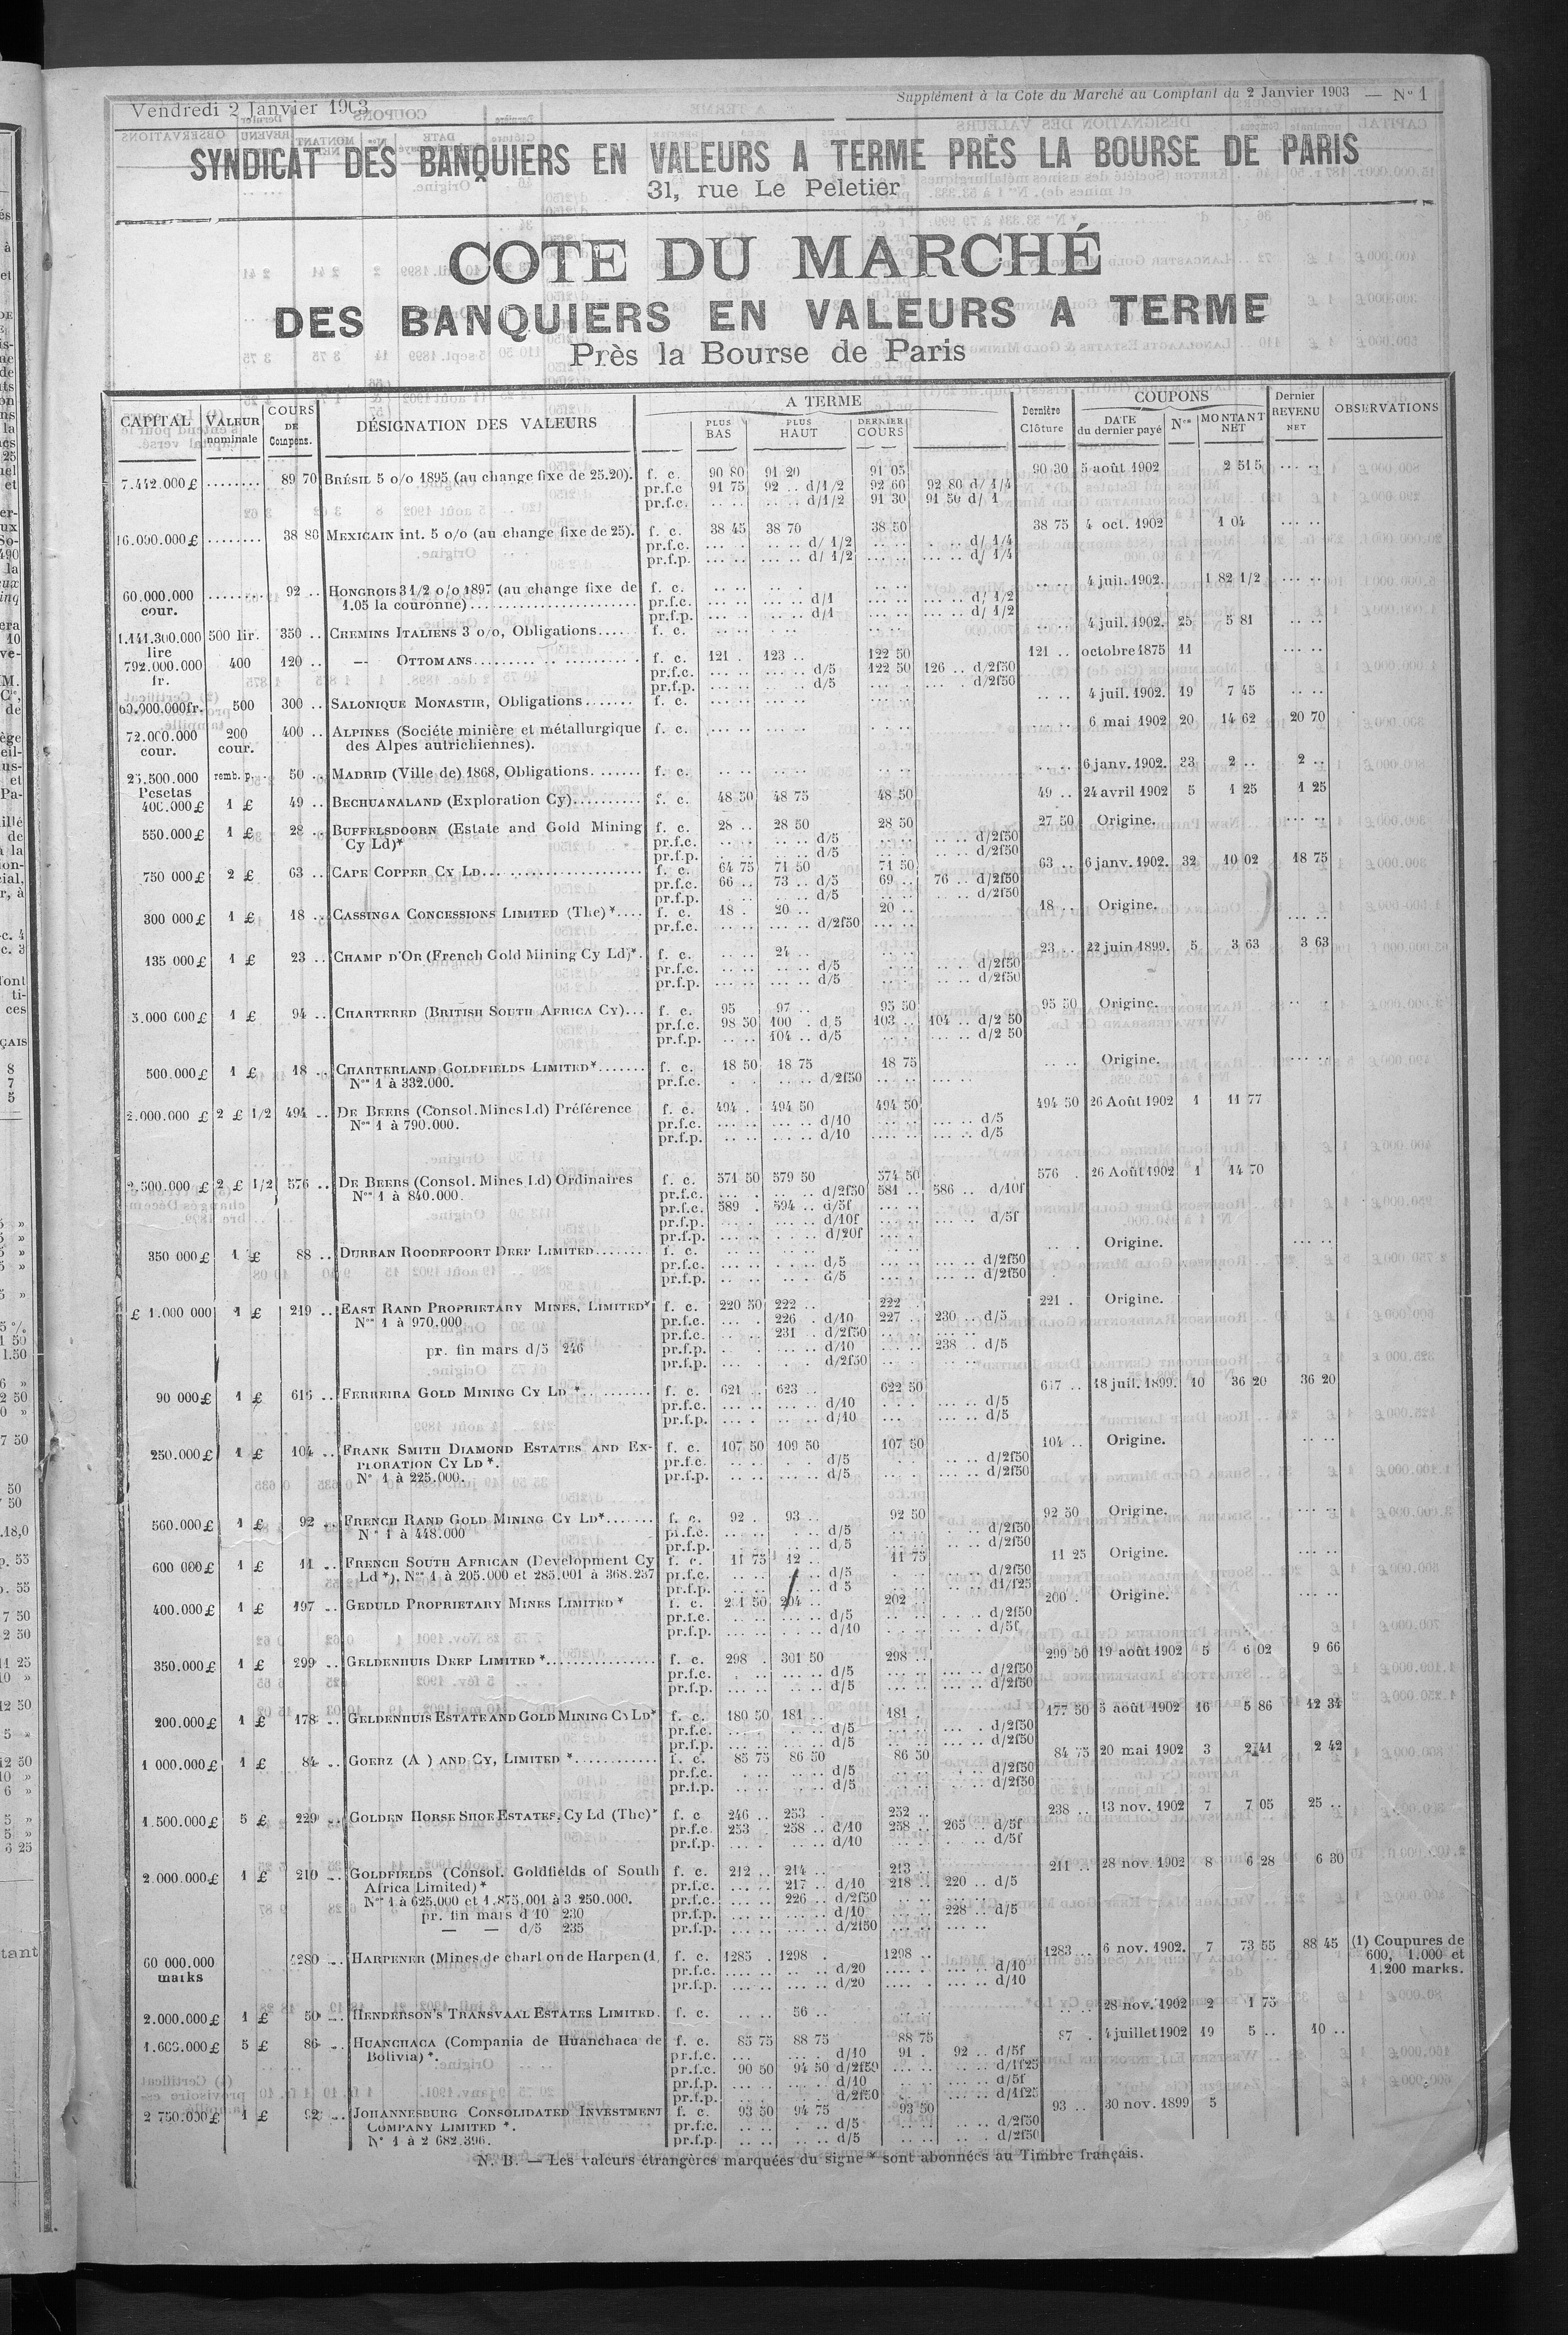 Vendredi 2 Janvier 1903
Supplément à la Cote du Marché au Comptant du 2 Janvier 1903 — N° 1
SYNDICAT DES BANQUIERS EN VALEURS A TERME PRÈS LA BOURSE DE PARIS
31, rue Le Peletier
COTE DU MARCHÉ
DES BANQUIERS EN VALEURS A TERME
Près la Bourse de Paris
CAPITAL VALEUR nominale COURS DE Compens. DÉSIGNATION DES VALEURS A TERME PLUS BAS PLUS HAUT DERNIER COURS Dernière Clôture COUPONS DATE du dernier payé Nos MONTANT NET Dernier REVENU NET OBSERVATIONS
7.442.000 £ ........ 89 70 BRÉSIL 5 o/o 1895 (au change fixe de 25.20). f. c. 90 80 91 20 91 05 90 30 5 août 1902 2 515 .... ..
pr.f.c 91 75 92 .. d/1/2 92 60 92 80 d/ 1/4
pr.f.c. .. .. .. .. d/1/2 91 30 91 50 d/ 1
16.000.000 £ ........ 38 80 MEXICAIN int. 5 o/o (au change fixe de 25). f. c. 38 45 38 70 38 50 38 75 4 oct. 1902 1 04 ... ..
pr.f.c. d/ 1/2 d/ 1/4
pr.f.p. d/ 1/2 d/ 1/4
60.000.000 cour. ........ 92 .. HONGROIS 3 1/2 o/o 1897 (au change fixe de f. c. 4 juil. 1902. 1 82 1/2
1.05 la couronne) pr.f.c. d/1 d/ 1/2
pr.f.p. d/1 d/ 1/2
1.141.300.000 lire 500 lir. 350 .. CHEMINS ITALIENS 3 o/o, Obligations.... f. c. 4 juil. 1902. 25 5 81
792.000.000 fr. 400 120 .. — OTTOMANS f. c. 121 . 123 .. 122 50 121 .. octobre 1875 11
pr.f.c. d/5 122 50 126 .. d/2f50
pr.f.p. d/5 d/2f50
60.000.000fr. 500 300 .. SALONIQUE MONASTIR, Obligations....... f. c. 4 juil. 1902. 19 7 45
72.000.000 cour. 200 cour. 400 .. ALPINES (Sociéte minière et métallurgique f. c. 6 mai 1902 20 14 62 20 70
des Alpes autrichiennes).
25.500.000 Pesetas remb. p. 50 .. MADRID (Ville de) 1868, Obligations....... f. c. 6 janv. 1902. 33 2 .. 2 ..
400.000 £ 1 £ 49 .. BECHUANALAND (Exploration Cy).......... f. c. 48 50 48 75 48 50 49 .. 24 avril 1902 5 1 25 1 25
550.000 £ 1 £ 28 .. BUFFELSDOORN (Estate and Gold Mining f. c. 28 .. 28 50 28 50 27 50 Origine.
Cy Ld)* pr.f.c. d/5 d/2f50
pr.f.p. d/5 d/2f50
750 000 £ 2 £ 63 .. CAPE COPPER CY LD f. c. 64 75 71 50 71 50 63 .. 6 janv. 1902. 32 10 02 18 75
pr.f.c. 66 .. 73 .. d/5 69 .. 76 .. d/2f50
pr.f.p. d/5 d/2f50
300 000 £ 1 £ 18 .. CASSINGA CONCESSIONS LIMITED (The) *.... f. c. 18 . 20 .. 20 .. 18 .. Origine.
pr.f.c. d/2f50
135 000 £ 1 £ 23 .. CHAMP D'OR (French Gold Mining Cy Ld)*. f. c. 24 .. 23 .. 22 juin 1899. 5 3 63 3 63
pr.f.c. d/5 d/2f50
pr.f.p. d/5 d/2f50
3.000 000 £ 1 £ 94 .. CHARTERED (BRITISH SOUTH AFRICA CY)... f. c. 95 97 .. 95 50 95 50 Origine.
pr.f.c. 98 50 100 . d,5 103 .. 104 .. d/2 50
pr.f.p. 104 .. d/5 d/2 50
500.000 £ 1 £ 18 .. CHARTERLAND GOLDFIELDS LIMITED*....... f. c. 18 50 18 75 18 75 Origine.
Nos 1 à 332.000. pr.f.c. d/2f50
2.000.000 £ 2 £ 1/2 494 .. DE BEERS (Consol. Mines Ld) Préférence f. c. 494 . 494 50 494 50 494 50 26 Août 1902 1 11 77
Nos 1 à 790.000. pr.f.c. d/10 d/5
pr.f.p. d/10 d/5
2.500.000 £ 2 £ 1/2 576 .. DE BEERS (Consol. Mines Ld) Ordinaires f. c. 571 50 579 50 574 50 576 . 26 Août 1902 1 14 70
Nos 1 à 840.000. pr.f.c. d/2f50 581 .. 586 .. d/10f
pr.f.c. 589 . 594 .. d/5f
pr.f.p. d/10f d/5f
pr.f.p. d/20f
350 000 £ 1 £ 88 .. DURBAN ROODEPOORT DEEP LIMITED....... f. c. Origine.
pr.f.c. d/5 d/2f50
pr.f.p. d/5 d/2f50
£ 1.000 000 1 £ 219 .. EAST RAND PROPRIETARY MINES, LIMITED* f. c. 220 50 222 .. 222 .. 221 . Origine.
Nos 1 à 970.000 pr.f.c. 226 . d/10 227 .. 230 .. d/5
pr.f.c. 231 .. d/2f50
pr. fin mars d/5 246 pr.f.p. d/10 238 .. d/5
pr.f.p. d/2f50
90 000 £ 1 £ 616 .. FERREIRA GOLD MINING CY LD * f. c. 621 .. 623 .. 622 50 617 .. 18 juil. 1899. 10 36 20 36 20
pr.f.c. d/10 d/5
pr.f.p. d/10 d/5
250.000 £ 1 £ 104 .. FRANK SMITH DIAMOND ESTATES AND EX- f. c. 107 50 109 50 107 50 104 .. Origine.
PLORATION CY LD *. pr.f.c. d/5 d/2f50
N° 1 à 225.000. pr.f.p. d/5 d/2f50
560.000 £ 1 £ 92 .. FRENCH RAND GOLD MINING CY LD*....... f. c. 92 . 93 .. 92 50 92 50 Origine.
Nos 1 à 448.000 pr.f.c. d/5 d/2f50
pr.f.p. d/5 d/2f50
600 000 £ 1 £ 11 .. FRENCH SOUTH AFRICAN (Development Cy f. c. 11 75 12 .. 11 75 11 25 Origine.
Ld *). Nos 1 à 205.000 et 285.001 à 368.257 pr.f.c. d/5 d/2f50
pr.f.p. d 5 d1/f25
400.000 £ 1 £ 197 .. GEDULD PROPRIETARY MINES LIMITED * f. c. 201 50 204 .. 202 .. 200 . Origine.
pr.f.c. d/5 d/2f50
pr.f.p. d/10 d/5f
350.000 £ 1 £ 299 .. GELDENHUIS DEEP LIMITED * f. c. 298 . 301 50 298 .. 299 50 19 août 1902 5 6 02 9 66
pr.f.c. d/5 d/2f50
pr.f.p. d/5 d/2f50
200.000 £ 1 £ 178 .. GELDENHUIS ESTATE AND GOLD MINING Cy LD* f. c. 180 50 181 .. 181 . 177 50 5 août 1902 16 5 86 12 34
pr.f.c. d/5 d/2f50
pr.f.p. d/5 d/2f50
1 000.000 £ 1 £ 84 .. GOERZ (A ) AND CY, LIMITED * f. c. 85 75 86 50 86 50 84 75 20 mai 1902 3 2 41 2 42
pr.f.c. d/5 d/2f50
pr.f.p. d/5 d/2f50
1.500.000 £ 5 £ 229 .. GOLDEN HORSE SHOE ESTATES, Cy Ld (The)* f. c 246 .. 253 . 252 .. 238 .. 13 nov. 1902 7 7 05 25 ..
pr.f.c. 253 258 .. d/10 258 .. 265 .. d/5f
pr.f.p. d/10 d/5f
2.000.000 £ 1 £ 210 .. GOLDFIELDS (Consol. Goldfields of South f. c. 212 .. 214 .. 213 .. 211 .. 28 nov. 1902 8 6 28 6 30
Africa Limited)* pr.f.c. 217 .. d/10 218 .. 220 .. d/5
Nos 1 à 625.000 et 1.875.001 à 3 250.000. pr.f.c. 226 .. d/2f50
pr. fin mars d 10 230 pr.f.p. d/10 228 .. d/5
— — d/5 235 pr.f.p. d/2f50
60 000.000 marks 1280 .. HARPENER (Mines de charbon de Harpen (1) f. c. 1285 . 1298 . 1298 .. 1283 .. 6 nov. 1902. 7 73 55 88 45 (1) Coupures de
pr.f.c. d/20 d/10 600, 1.000 et
pr.f.p. d/20 d/10 1.200 marks.
2.000.000 £ 1 £ 50 .. HENDERSON'S TRANSVAAL ESTATES LIMITED. f. c. 56 .. 28 nov. 1902 2 1 75
1.600.000 £ 5 £ 86 .. HUANCHACA (Compania de Huanchaca de f. c. 85 75 88 75 88 75 87 . 4 juillet 1902 19 5 .. 10 ..
Bolivia) *. pr.f.c. d/10 91 . 92 .. d/5f
pr.f.c. 90 50 94 50 d/2f50 d/1f25
pr.f.p. d/10 d/5f
pr.f.p. d/2f50 d/1f25
2 750.000 £ 1 £ 92 .. JOHANNESBURG CONSOLIDATED INVESTMENT f. c. 93 50 94 75 93 50 93 .. 30 nov. 1899 5
COMPANY LIMITED *. pr.f.c. d/5 d/2f50
N° 1 à 2 682.396. pr.f.p. d/5 d/2f50
N. B. — Les valeurs étrangères marquées du signe * sont abonnées au Timbre français.